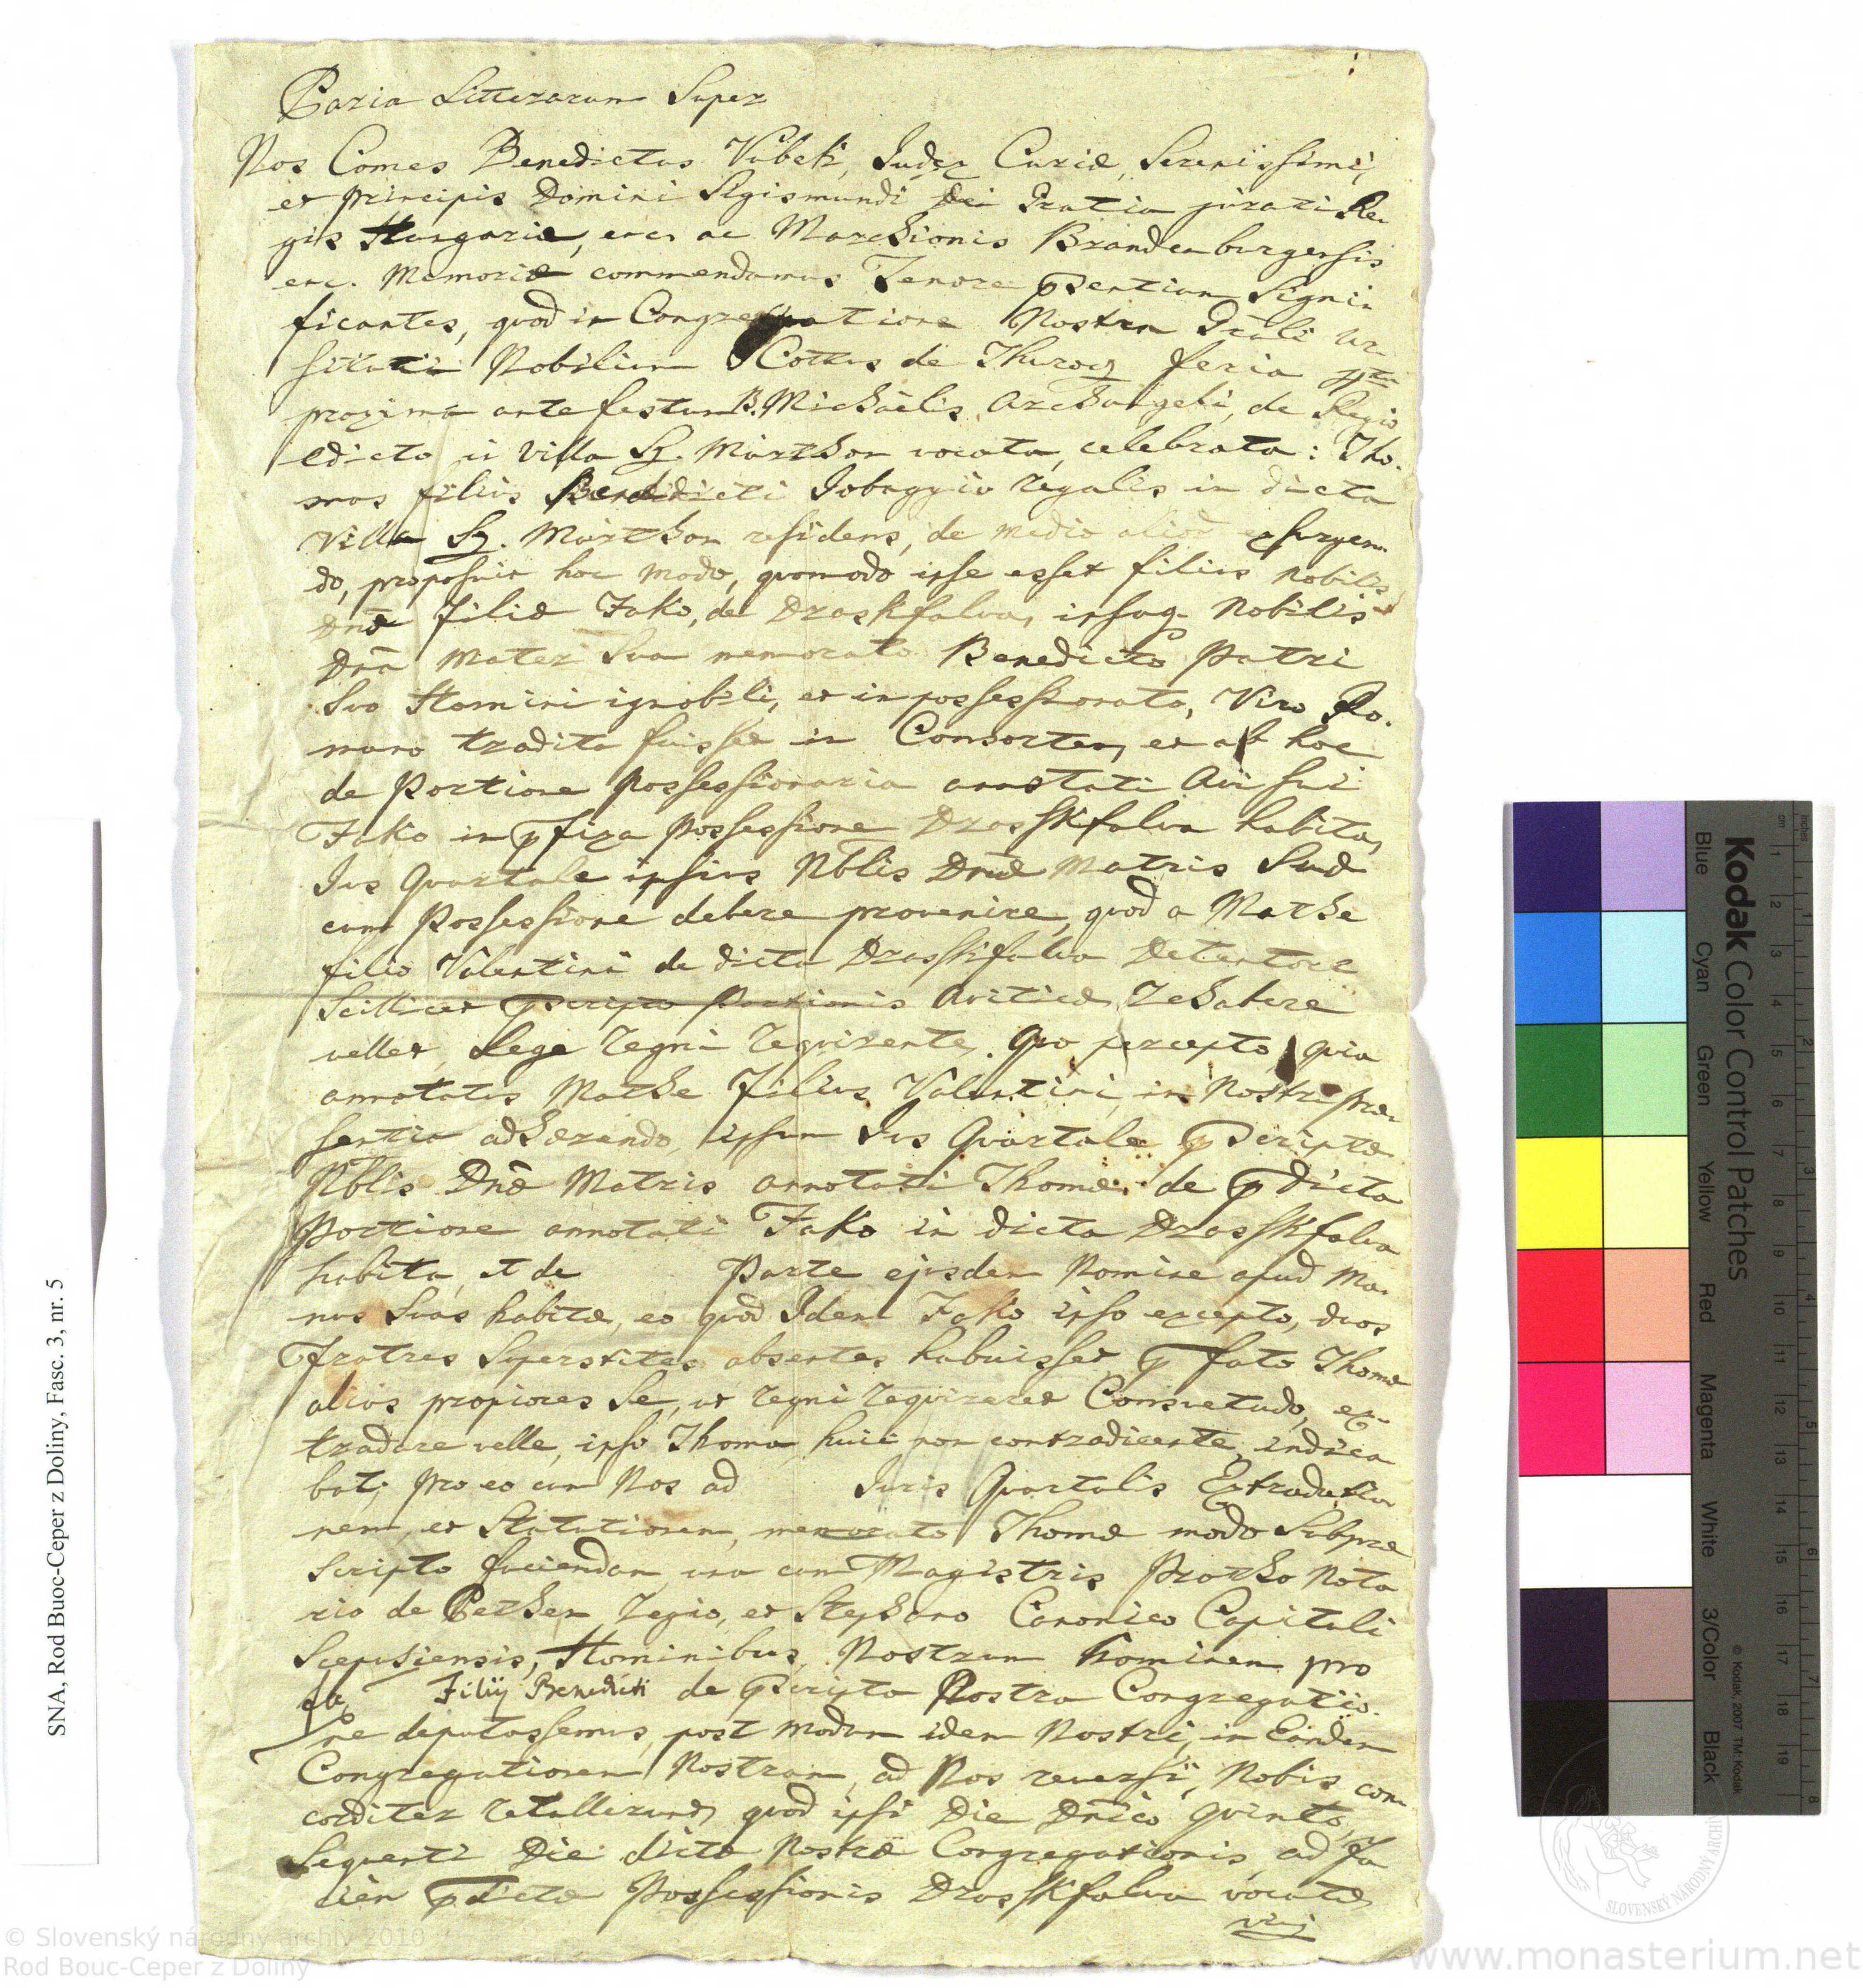 Paria Litterarum Super
Nos Comes Benedictus Vubek, Judex Curiæ, Serenissimi,
et Principis Domini Sigismundi Dei Gratia jurati Re
gis Hungariæ, etc. ac Marchionis Brandenburgensis
etc. Memoriæ commendamus Tenore pſentium Signi
ficantes, quod in Congregatione Nostra Grãli U
sitati Nobilium Cottus de Thurocz feria
proxima ante festum B. Michaëlis Archangeli, de Regio
edicto in Villa Sz. Márthon vocata, celebrata: Tho-
mas filius Benedicti Jobaggio regalis in dicta
Villa Sz. Márthon residens, de medio alior exsurgen
do, proposuit hoc modo, quomodo ipse esset filius nobilis
Dnæ filiæ Jako, de Draskfalva, ipsaq. Nobilis
Dnã Mater Sua memorato Benedicto Patri
Suo Homini ignobili, et inpossessionato, Viro Ro-
mano tradita fuisset in Consortem, et ab hoc
de Portione possessionaria annotati Avi sui
Jako in pfixa possessione Drasskfalva habita,
Jus Quartale ipsius Nblis Dnæ Matris Suæ
cum Possessione debere provenire, quod a Mathe
filio Valentini de dicta Drasskfalva Detentore
Scillicet pscripto Portionis Aviticæ, rehabere
vellet, Lege regni requirente. Quo percepto, quia
annotatus Mathe filius Valentini, in Nostri præ
sentia adhærendo, ipsum Jus Quartale pscriptæ
Nblis Dnæ Matris annotati Thomæ, de pdicta
Portione annotati Jako in dicta Drasskfalva
habita, et de Parte ejusdem Nomine apud Ma-
nus Suas habitæ, eo quod Idem Jako ipso excepto, duos
Fratres Superstites absentes habuisset pfato Thomæ
alios propiores Se, ut regni requireret Consvetudo, ex-
tradare velle, ipso Thoma huic non contradicente, indica
bat; pro eo cum Nos ad Juris Quartalis Extradatio
nem, et Statutionem, memorato Thomæ modo Subpræ
scripto faciendam, una cum Magistris Protho Nota
rio de Bethen regio, et Stephano Canonico Capituli
Scepusiensis, Hominibus, Nostrum hominem pro
Filij Benedicti de pscripta Nostra Congregatio-
ne deputassemus, post modum idem Nostri, in Eandem
Congregationem Nostram, ad Nos reversi, Nobis con
corditer retullerunt, quod ipsi Die Dnico quinto,
Sequenti Die dictæ Nostræ Congregationis, ad fa
ciem pdictæ Possessionis Drasskfalva vocatæ,
SNA, Rod Buoc-Ceper z Doliny, Fasc. 3, nr. 5
Kodak Color Control Patches
Blue Cyan Green Yellow Red Magenta White 3/Color Black
© Kodak, 2007 TM: Kodak
cm 1 2 3 4 5 6 7 8 9 10 11 12 13 14 15 16 17 18 19
inches 1 2 3 4 5 6 7 8
SLOVENSKÝ NÁRODNÝ ARCHÍV
© Slovenský národný archív 2010
Rod Bouc-Ceper z Doliny
www.monasterium.net